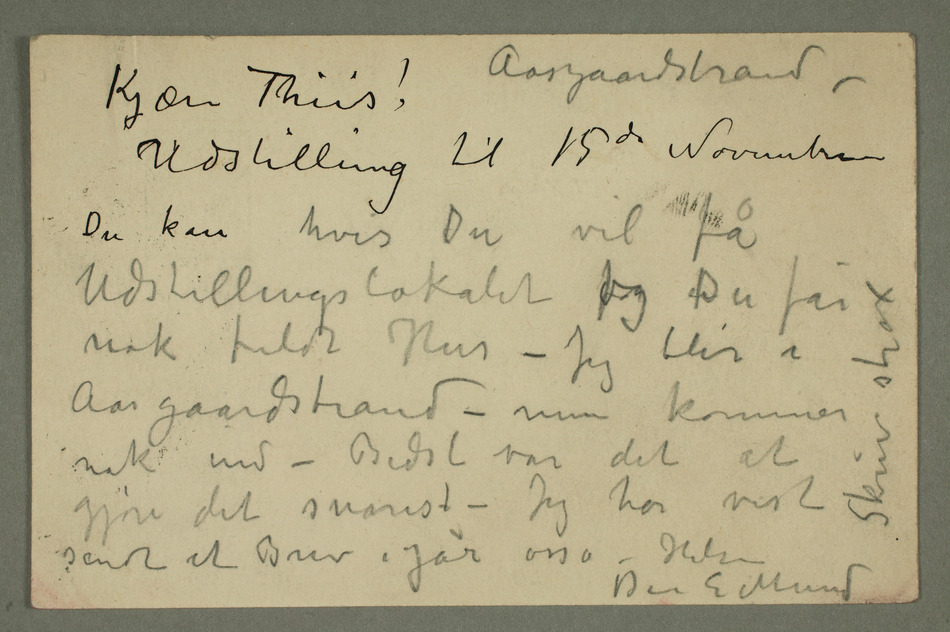 Aasgaardstrand –
Kjære Thiis!
Udstilling til 15de November
Du kan hvis Du vil få
Udstillingslokalet Jeg Du får
nok fuldt Hus – Jeg blir i
Aasgaardstrand – men kommer
nok ind – Bedst var det at
gjøre det snarest – Jeg har vist
sendt et Brev igår osså – Hilsen
Din E Munch
Skriv strax